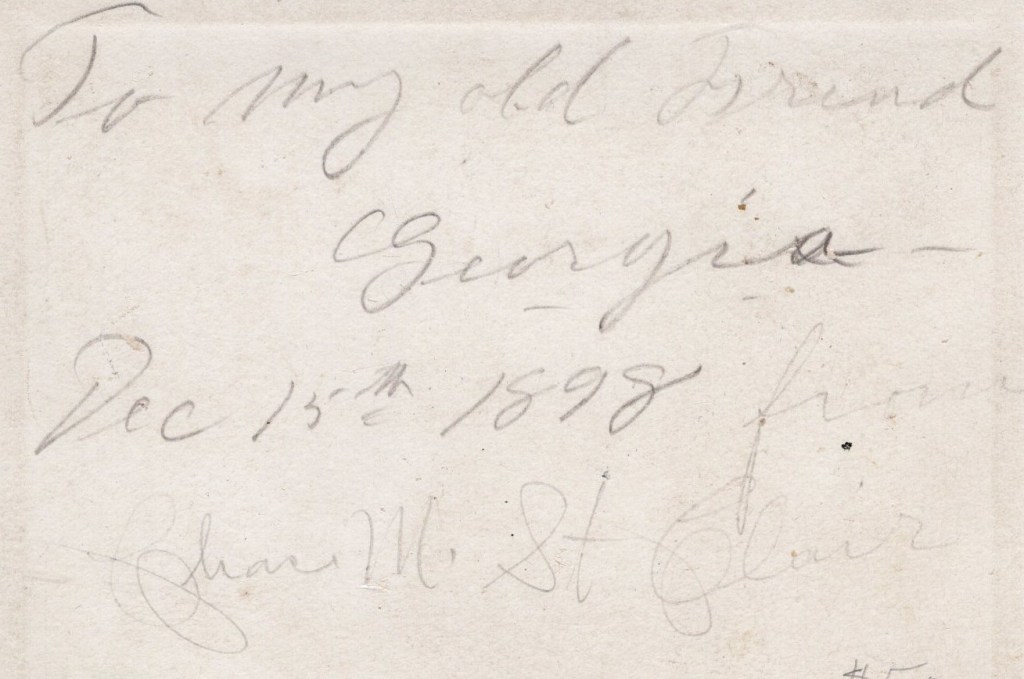 To my old Friend
Georgia -
Dec 15th 1898 from
Chas. M. St Clair